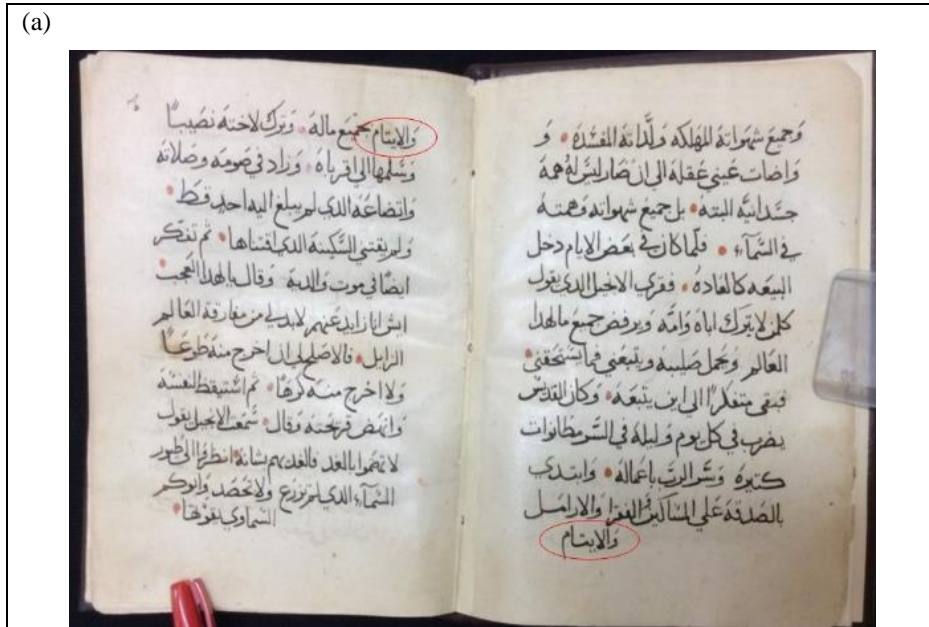 (a)
وجميع شهواته المهلكه ولداته المفسده • و
واضات عيني عقله الي ان صار ليس له همه
جسدانيه البته • بل جميع شهواته وهمته
في السمآء • فلما كان في بعض الايام دخل
البيعه كالعاده • فقري الانجيل الدي يقول
كلمن لا يترك اباه وامه ويرفض جميع ما لهدا
العالم وحمل صليبه ويتبعني فما يستحقني
فبقي متفكرا الي اين يتبعه • وكان القديس
يضرب في كل يوم وليله في السر مطانوات
كتيره وسر الرب باعماله • وابتدي
بالصدقه علي المساكين الفقرا والارامل
والايتام
والايتام بجميع ماله • وترك لاخته نصيباً
وسلمها الي اقرباه • وزاد في صومه وصلاته
واتضاعه الدي لم يبلغ اليه احد قط •
ولم يقتني السكينه الدي اقتناها • ثم تفكر
ايضا في موت والديه وقال يا لهدا العجب
ايش انا زايد عنهم لابد لي من مفارقة العالم
الزايل • فالاصلح لي ان اخرج منه طوعاً
ولا اخرج منه كرهاً • ثم استيقظ لنفسه
وانهض قريحته وقال • سمعت الانجيل يقول
لا تهتموا بالغد فالغد يهتم بشانه • انظروا الي طيور
السمآء الدي لم تزرع ولا تحصد وابوكم
السماوي يقوتها •